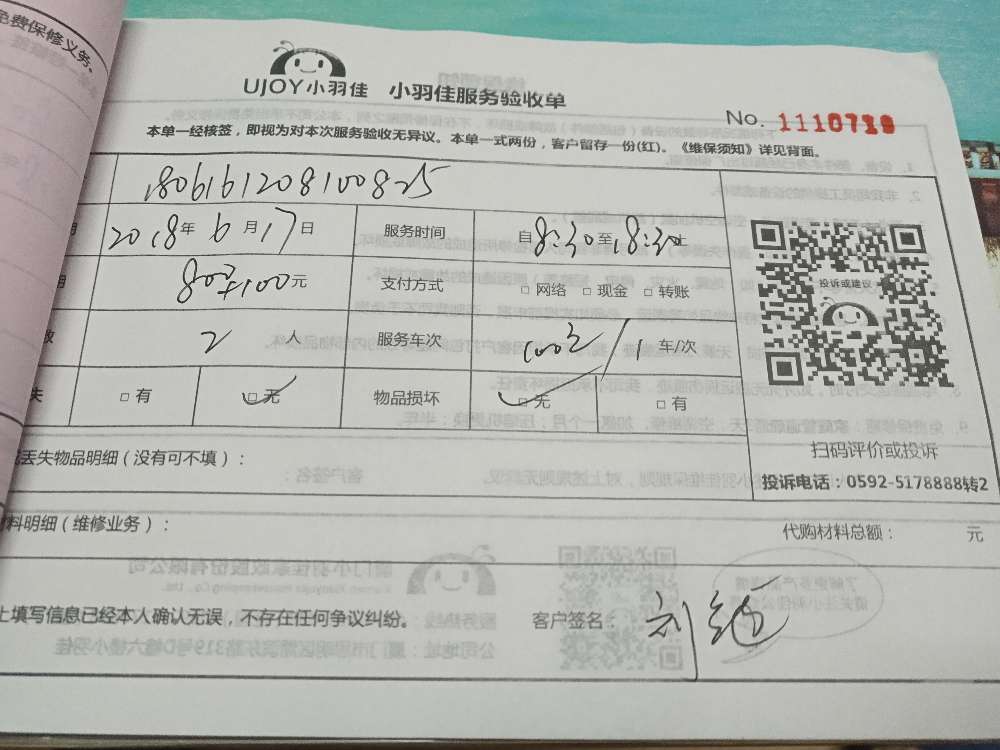 免费保修义务。
UJOY小羽佳 小羽佳服务验收单
No. 1110719
本单一经核签，即视为对本次服务验收无异议。本单一式两份，客户留存一份(红)。《维保须知》详见背面。
1806161208100825
2018年6月17日 服务时间 自8:30至18:30止
元 支付方式 □ 网络 □ 现金 □ 转账
投诉或建议
2 人 服务车次 1 车/次
□ 有 □ 无 物品损坏 □ 无 □ 有
扫码评价或投诉
丢失物品明细（没有可不填）：
投诉电话：0592-5178888转2
料明细（维修业务）： 代购材料总额： 元
上填写信息已经本人确认无误，不存在任何争议纠纷。 客户签名：